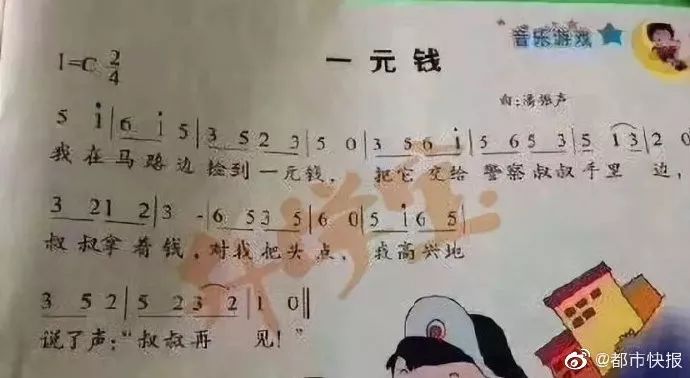 音乐游戏
1=C 2/4
一元钱
曲:潘振声
5 i|6 i 5|3 5 2 3|5 0|3 5 6 i|5 6 5 3|5 1 3|2 0
我在马路边捡到一元钱，把它交给警察叔叔手里边，
3 2 1 2|3 -|6 5 3 5|6 0|5 i 6 5|
叔叔拿着钱，对我把头点，我高兴地
3 5 2|5 2 3 2|1 0‖
说了声:“叔叔再见!”
@都市快报